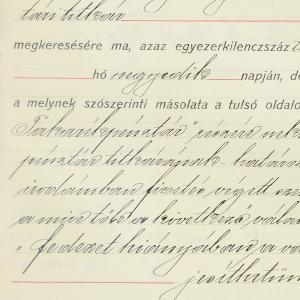 tári titkár
megkeresésére ma, azaz egyezerkilenczszáz
hó negyedik napján, de
a melynek szószerinti másolata a tulsó oldalo
Takarékpénztár" részére
pénztár titkárának
irodámban fizetés végett
a mire től a következő vála
„fedezet hiányában a vá